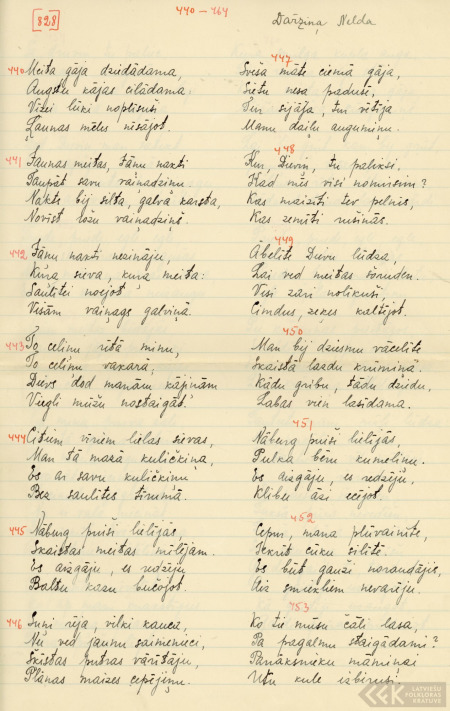 828
440 – 464
Dārziņa Nelda
440 Meita gāja dziedādama,
Augstu kājas cilādama,
Visi lūki noplīsuši
Ļaunas mēles nēsājot.
441 Jaunas meitas, Jāņu nakti
Taupāt savu vaiņadziņu.
Nakts bij silta, galva karsta,
Novīst rožu vaiņadziņš.
442 Jāņu nakti nezināju,
Kuŗa sieva, kuŗa meita:
Saulītei noejot
Visām vaiņags galviņā.
443 To celiņu rītā minu,
To celiņu vakarā,
Dievs dod manām kājiņām
Viegli mūžu nostaigāt.
444 Citiem vīriem lielas sievas,
Man tā mazā kuličkiņa,
Es ar savu kuličkiņu
Bez saulītes sirmma.
445 Nāburg puiši lielījās,
Skaistas meitas mīlējam.
Es aizgāju, es redzēju
Baltu kazu bučojot.
446 Suņi rēja, vilki kauca,
Nu ved jaunu saimenieci,
Šķistas putras vārītāju,
Plānas maizes cepējiņu.
447
Sveša māte ciemā gāja,
Sietu nesa padusē,
Tur sijāja, tur vētīja
Manu daiļu augumiņu.
448
Kur, Dieviņ, tu paliksi,
Kad mēs visi nomirsim?
Kas maizīti tev pelnīs,
Kas zemīti rušinās.
449
Ābelīte Dievu lūdza,
Lai ved meitas šoruden.
Visi zari nolīkuši,
Cimdus, zeķes kaltējot.
450
Man bij dziesmu vācelīte
Skaistā lazdu krūmiņā.
Kādu gribu, tādu dziedu,
Labas vien lasīdama.
451
Nāburg puiši lielījās,
Pulka bēru kumeliņu.
Es aizgāju, es redzēju,
Klibu āzi ecējot.
452
Cepur, mana plīvainīte,
Iekrīt cūku silītē.
Es būt gauži noraudājis,
Aiz smiekliem nevarēju.
453
Ko tie mūsu čāli lasa,
Pa pagalmu staigādami?
Panāksnieku māmiņai
Utu kule izbirusi.
LATVIEŠU
FOLKLORAS
KRĀTUVE